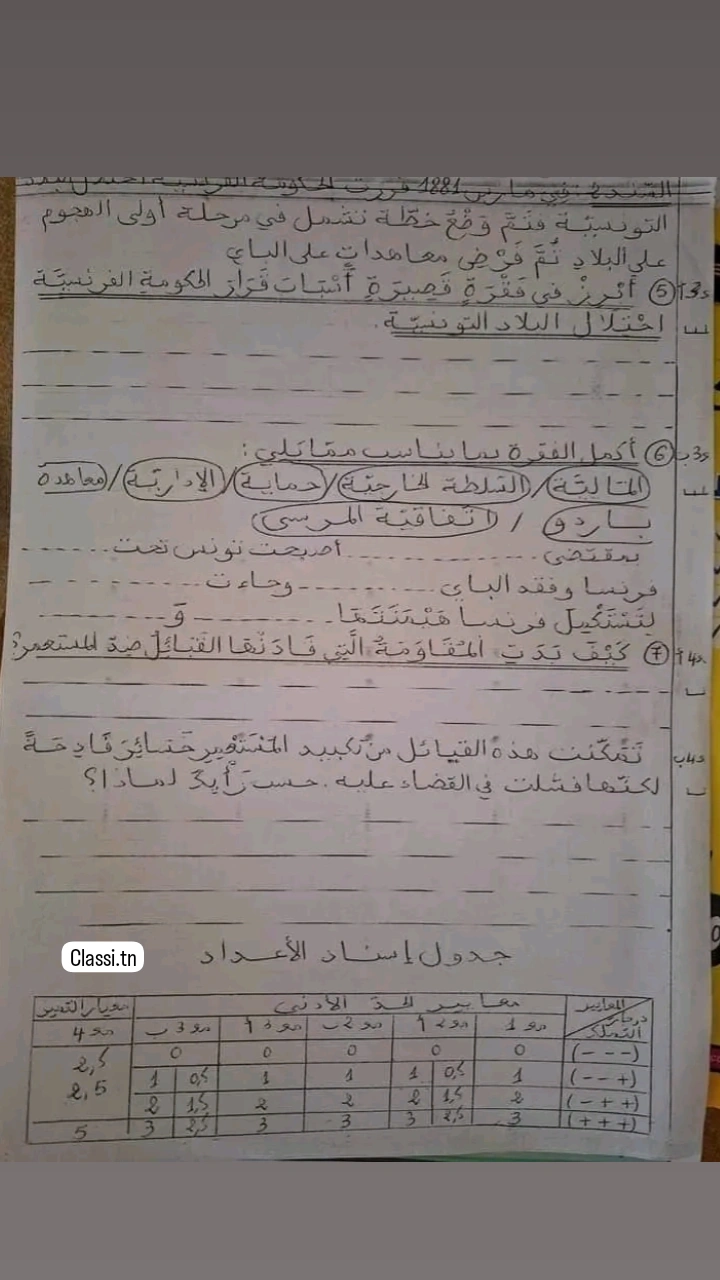 السّند 2: في مارس 1881 قررت الحكومة الفرنسية احتلال البلاد
التونسيّة فتمّ وضعُ خطّة تشمل في مرحلة أولى الهجوم
على البلاد ثُمّ فَرْض معاهداتٍ على الباي
مع3أ ⑤ أُبرِزُ في فَقْرَةٍ قَصِيرَةٍ أَسْبَابَ قَرَارِ الحكومة الفرنسيّة
احْتِلَال البلاد التونسيّة.
مع3ب ⑥ أكمل الفقرة بما يناسب ممّا يلي:
الماليّة / السّلطة الخارجيّة / حماية / الإداريّة / معاهدة
باردو / اتّفاقيّة المرسى
بمقتضى ............ أصبحت تونس تحت .......
فرنسا وفقد الباي .......... وجاءت ........
لِتَسْتَكْمِلَ فرنسا هَيْمَنَتَهَا .......... وَ ..........
مع4أ ⑦ كَيْفَ بَدَتِ المُقَاوَمَةُ الَّتِي قَادَتْهَا القَبَائِلُ ضِدَّ المستعمر؟
مع4ب تَمَكَّنت هذه القبائل من تكبيد المُسْتَعْمِرِ خَسَائِرَ فَادِحَةً
لكنّها فشلت في القضاء عليه. حسب رَأْيِكَ لماذا؟
Classi.tn
جدول إسناد الأعداد
المعايير
درجات التملّك
معايير الحدّ الأدنى
معيار التميز
مع 1 مع 2 أ مع 2 ب مع 3 أ مع 3 ب مع 4
(- - -) 0 0 0 0 0
(+ - -) 1 0,5 1 1 1 0,5 1 2,5
(+ + -) 2 1,5 2 2 2 1,5 2 2,5
(+ + +) 3 2,5 3 3 3 2,5 3 5